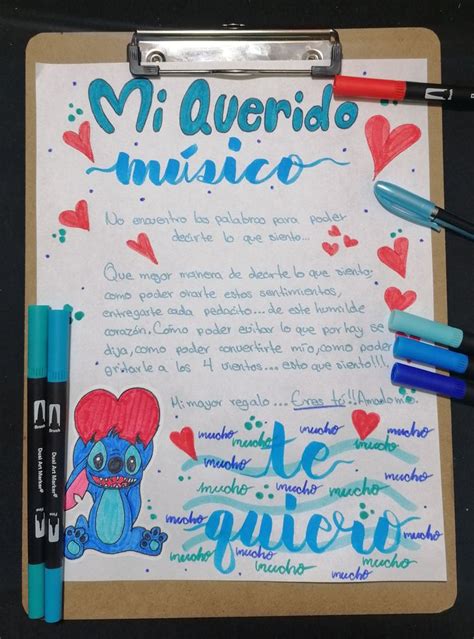 Mi Querido
músico
No encuentro las palabras para poder
decirte lo que siento...
Que mejor manera de decirte lo que siento;
como poder orarte estos sentimientos,
entregarte cada pedacito... de este humilde
corazón. Cómo poder evitar lo que por hay se
dija, como poder convertirte mío, como poder
gritarle a los 4 vientos... esto que siento!!!
Mi mayor regalo... Eres tú!! Amado mío.
mucho mucho mucho mucho
mucho mucho mucho
te
mucho mucho mucho
mucho mucho mucho
mucho mucho
quiero
mucho mucho mucho mucho
mucho mucho mucho
Dual Art Marker
Dual Art Marker